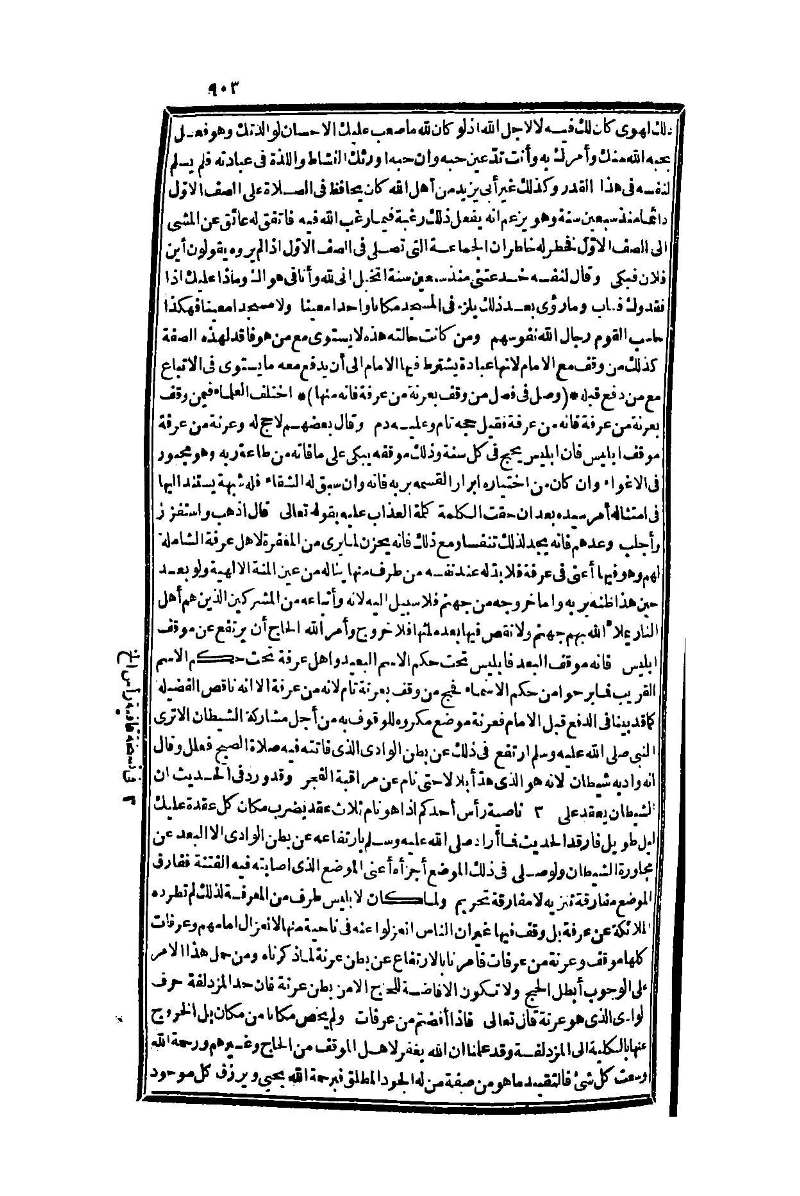 ٩٠٣
ذلك لهوى كان لك فيه لا لاجل الله اذ لو كان لله ما صعب عليك الاحسان لوالدتك وهو فعل
يحبه الله منك وأمرك به وأنت تدعين حبه وان حبه اورثك النشاط واللذة فى عبادته فلم يسلم
لنفسه فى هذا القدر وكذلك غير أبى يزيد من أهل الله كان يحافظ فى الصلاة على الصف الاوّل
دائما منذ سبعين سنة وهو يزعم انه يفعل ذلك رغبة فيما رغب الله فيه فاتفق له عائق عن المشى
الى الصف الاوّل فخطر له خاطران الجماعة التى تصلى فى الصف الاوّل اذا لم يروه يقولون أين
فلان فبكى وقال لنفسه خدعتنى منذ سبعين سنة اتخيل انى لله وأنا فى هواك وماذا عليك اذا
فقدوك فتاب وما رؤى بعد ذلك يلزم فى المسجد مكانا واحدا معينا ولا مسجدا معينا فهكذا
حاسب القوم رجال الله نفوسهم ومن كانت حالته هذه لا يستوى مع من هو فاقد لهذه الصفة
كذلك من وقف مع الامام لانها عبادة يشترط فيها الامام الى أن يدفع معه ما يستوى فى الاتباع
مع من دفع قبله *(وصل فى فصل من وقف بعرنة من عرفة فانه منها)* اختلف العلماء فيمن وقف
بعرنة من عرفة فانه من عرفة فقيل حجه تام وعليه دم وقال بعضهم لا حج له وعرنة من عرفة
موقف ابليس فان ابليس يحج فى كل سنة وذلك موقفه يبكى على ما فاته من طاعة ربه وهو مجبور
فى الاغواء وان كان من اختياره ابرار القسمه بربه فانه وان سبق له الشقاء فله شبهة يستند اليها
فى امتثاله أمر سيده بعد ان حقت الكلمة كلمة العذاب عليه بقوله تعالى قال اذهب واستفزز
وأجلب وعدهم فانه يجد لذلك تنفسا ومع ذلك فانه يحزن لما يرى من المغفرة لاهل عرفة الشاملة
لهم وهو فيها أعنى فى عرفة فلا بد له عند نفسه من طرف منها يناله من عين المنة الالهية ولو بعد
حين هذا ظنه بربه واما خروجه من جهنم فلا سبيل اليه لانه وأتباعه من المشركين الذين هم أهل
النار يملأ الله بهم جهنم ولا نقص فيها بعد ملئها فلا خروج وأمر الله الحاج أن يرتفع عن موقف
ابليس فانه موقف البعد فابليس تحت حكم الاسم البعيد واهل عرفة تحت حكم الاسم
القريب فما برحوا من حكم الاسماء فحج من وقف بعرنة تام لانه من عرفة الا انه ناقص الفضيلة
كما قد بينا فى الدفع قبل الامام فعرنة موضع مكروه للوقوف به من أجل مشاركة الشيطان الا ترى
النبى صلى الله عليه وسلم ارتفع فى ذلك عن بطن الوادى الذى فاتته فيه صلاة الصبح فعلل وقال
انه وادبه شيطان لانه هو الذى هدأ بلالا حتى نام عن مراقبة الفجر وقد ورد فى الحديث ان
الشيطان يعقد على ٣ ناصية رأس أحدكم اذا هو نام ثلاث عقد يضرب مكان كل عقدة عليك
ليل طويل فارقد الحديث فما أراد صلى الله عليه وسلم بارتفاعه عن بطن الوادى الا البعد عن
مجاورة الشيطان ولو صلى فى ذلك الموضع أجزأه أعنى الموضع الذى اصابته فيه الفتنة ففارق
الموضع مفارقة تنزيه لا مفارقة تحريم ولما كان لابليس طرف من المعرفة لذلك لم تطرده
الملائكة عن عرفة بل وقف فيها غير ان الناس انعزلوا عنه فى ناحية منها لانعزال امامهم وعرفات
كلها موقف وعرنة من عرفات فامرنا بالارتفاع عن بطن عرنة لما ذكرناه ومن حمل هذا الامر
على الوجوب أبطل الحج ولا تكون الافاضة للحج الا من بطن عرنة فان حد المزدلفة حرف
لوادى الذى هو عرنة قال تعالى فاذا أفضتم من عرفات ولم يخص مكانا من مكان بل الخروج
عنها بالكلية الى المزدلفة وقد علمنا ان الله يغفر لاهل الموقف من الحاج وغيرهم ورحمة الله
وسعت كل شئ فالتقييد ما هو من صفة من له الجود المطلق فبرحمة الله يحيى ويرزق كل موجود
٣ فى نسخة قافية رأس الخ